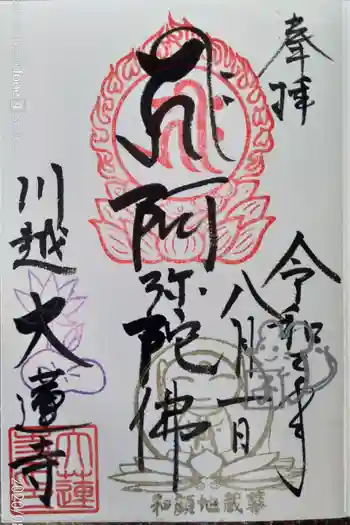 奉拝
令和二年
八月一日
阿弥陀佛
川越
大蓮寺
和顔地蔵尊